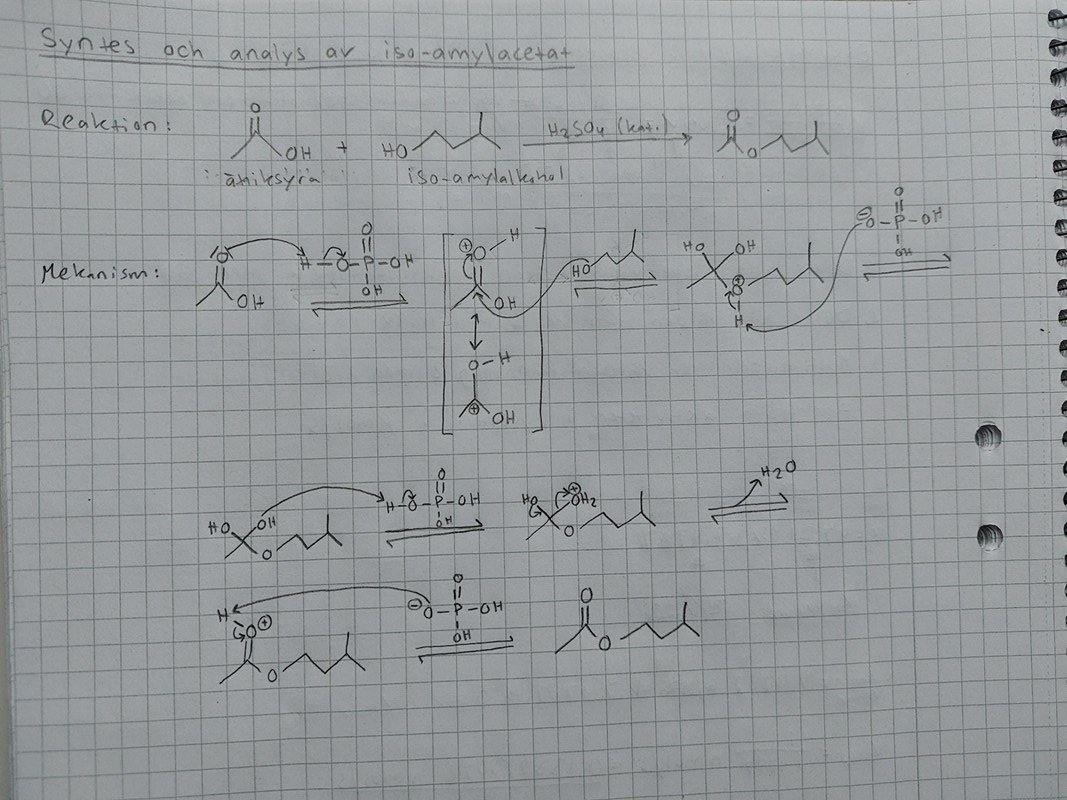 Syntes och analys av iso-amylacetat
Reaktion:
O
OH + HO H₂SO₄ (kat.) O
O
ättiksyra iso-amylalkohol
Mekanism:
O OH H-O-P-OH
O
OH
⊕ O-H
OH
HO
HO OH
⊕ O
H
⊖ O-P-OH
O
OH
O-H
⊕ OH
HO OH
O
H-O-P-OH
O
OH
HO ⊕ OH₂
O
H₂O
H
O ⊕
O
⊖ O-P-OH
O
OH
O
O